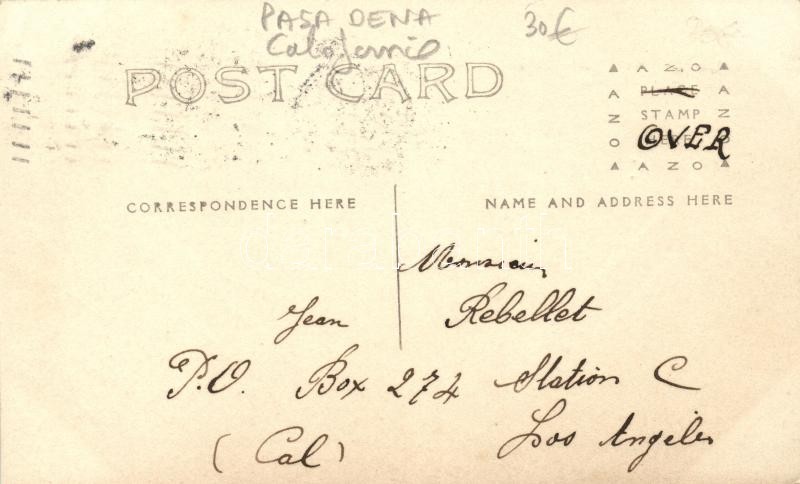 PASADENA
30€
POST CARD
AZO
PLACE
STAMP
OVER
AZO
CORRESPONDENCE HERE
NAME AND ADDRESS HERE
Monsieur
Jean Rebellet
P.O. Box 274 Station C
(Cal) Los Angeles